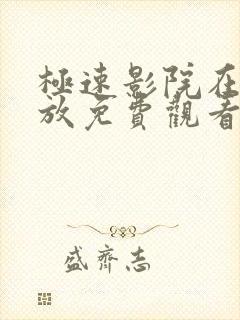 極速影院在
放免費觀看
盛齊志